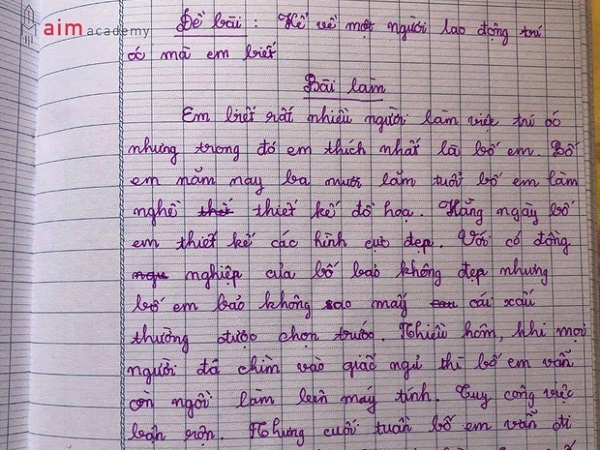 aim academy
Đề bài : Kể về một người lao động trí
óc mà em biết
Bài làm
Em biết rất nhiều người làm việc trí óc
nhưng trong đó em thích nhất là bố em. Bố
em năm nay ba mươi lăm tuổi bố em làm
nghề thiết kế đồ họa. Hằng ngày bố
em thiết kế các hình cực đẹp. Với cô đồng
nghiệp của bố bảo không đẹp nhưng
bố em bảo không sao mấy cái xấu
thường được chọn trước. Nhiều hôm, khi mọi
người đã chìm vào giấc ngủ thì bố em vẫn
còn ngồi làm bên máy tính. Tuy công việc
bận rộn. Nhưng cuối tuần bố em vẫn đi